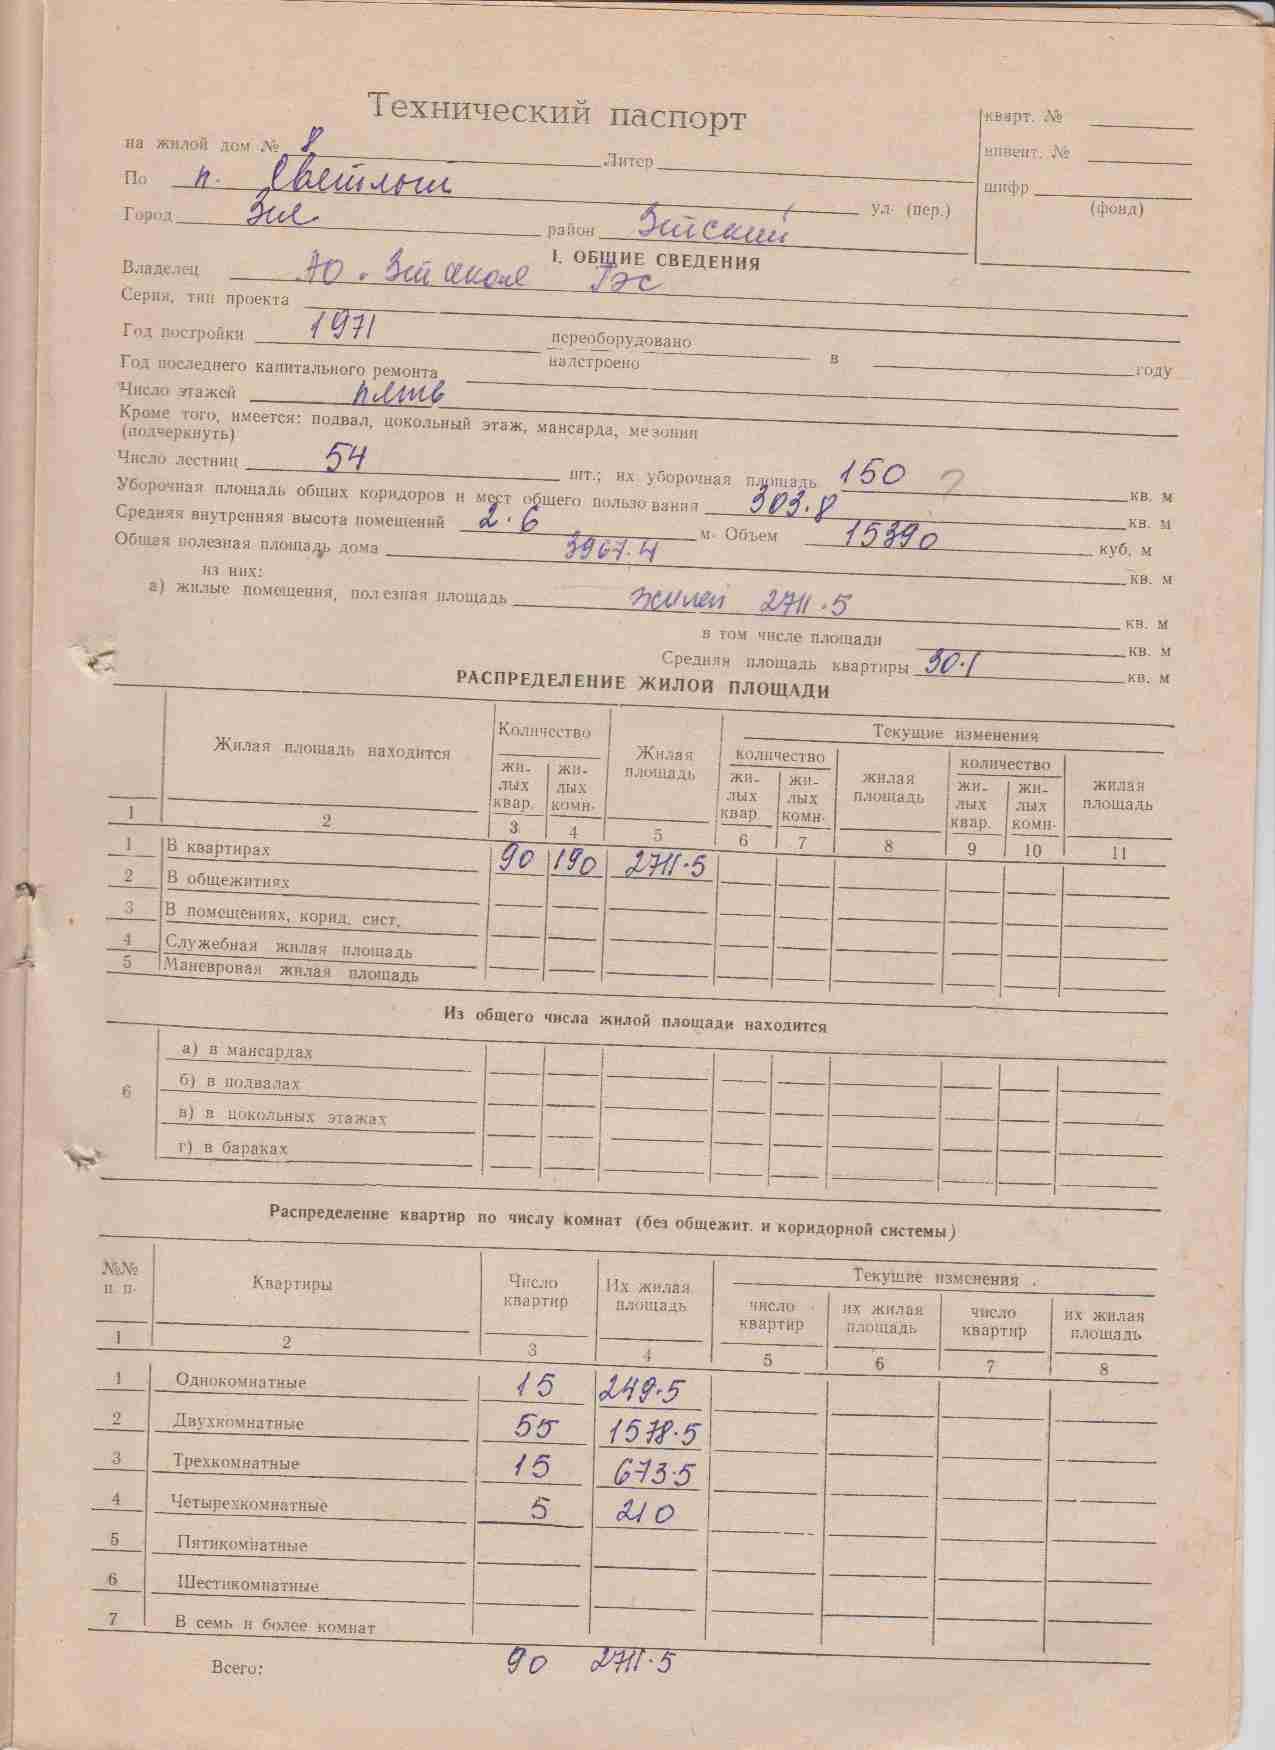 Технический паспорт
кварт. №
на жилой дом № 8 Литер
инвент. №
По п. Светлом ул. (пер.)
шифр
(фонд)
Город Зея район Зейский
I. ОБЩИЕ СВЕДЕНИЯ
Владелец АО. Зейская ГЭС
Серия, тип проекта
Год постройки 1971 переоборудовано
надстроено в году
Год последнего капитального ремонта
Число этажей пять
Кроме того, имеется: подвал, цокольный этаж, мансарда, мезонин
(подчеркнуть)
Число лестниц 54 шт.; их уборочная площадь 150 ? кв. м
Уборочная площадь общих коридоров и мест общего пользования 303.8 кв. м
Средняя внутренняя высота помещений 2.6 м. Объем 15390 куб. м
Общая полезная площадь дома 3967.4 кв. м
из них:
а) жилые помещения, полезная площадь жилой 2711.5 кв. м
в том числе площади кв. м
Средняя площадь квартиры 30.1 кв. м
РАСПРЕДЕЛЕНИЕ ЖИЛОЙ ПЛОЩАДИ
Жилая площадь находится Количество Жилая площадь Текущие изменения
количество жилая площадь количество жилая площадь
жи-лых квар. жи-лых комн. жи-лых квар. жи-лых комн. жи-лых квар. жи-лых комн.
1 2 3 4 5 6 7 8 9 10 11
1 В квартирах 90 190 2711.5
2 В общежитиях
3 В помещениях, корид. сист.
4 Служебная жилая площадь
5 Маневровая жилая площадь
Из общего числа жилой площади находится
6 а) в мансардах
б) в подвалах
в) в цокольных этажах
г) в бараках
Распределение квартир по числу комнат (без общежит. и коридорной системы)
№№ п. п. Квартиры Число квартир Их жилая площадь Текущие изменения
число квартир их жилая площадь число квартир их жилая площадь
1 2 3 4 5 6 7 8
1 Однокомнатные 15 249.5
2 Двухкомнатные 55 1578.5
3 Трехкомнатные 15 673.5
4 Четырехкомнатные 5 210
5 Пятикомнатные
6 Шестикомнатные
7 В семь и более комнат
Всего: 90 2711.5